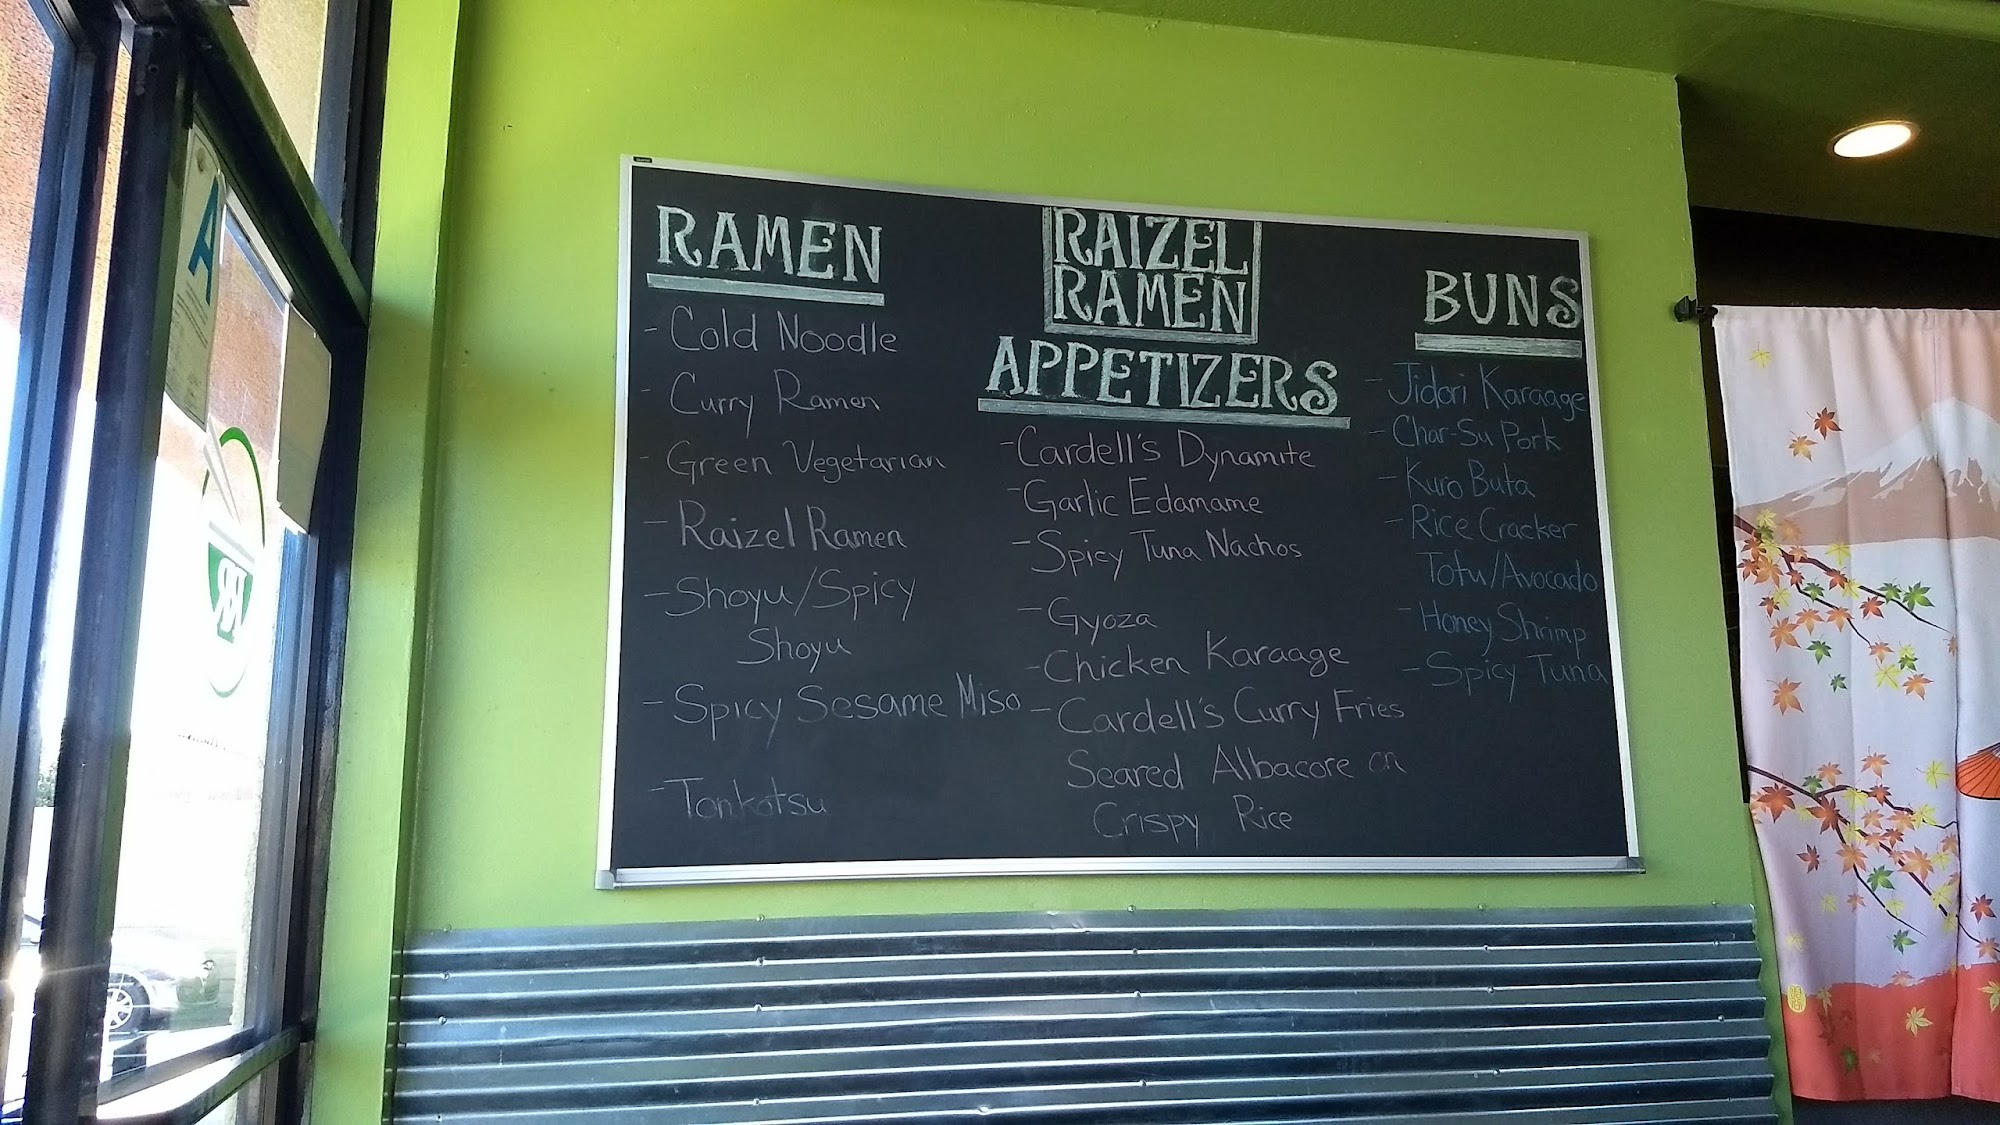 RAMEN
- Cold Noodle
- Curry Ramen
- Green Vegetarian
- Raizel Ramen
- Shoyu/Spicy
Shoyu
- Spicy Sesame Miso
- Tonkotsu
RAIZEL
RAMEN
APPETIZERS
- Cardell's Dynamite
- Garlic Edamame
- Spicy Tuna Nachos
- Gyoza
- Chicken Karaage
- Cardell's Curry Fries
Seared Albacore on
Crispy Rice
BUNS
- Jidori Karaage
- Char-Su Pork
- Kuro Buta
- Rice Cracker
Tofu/Avocado
- Honey Shrimp
- Spicy Tuna
A